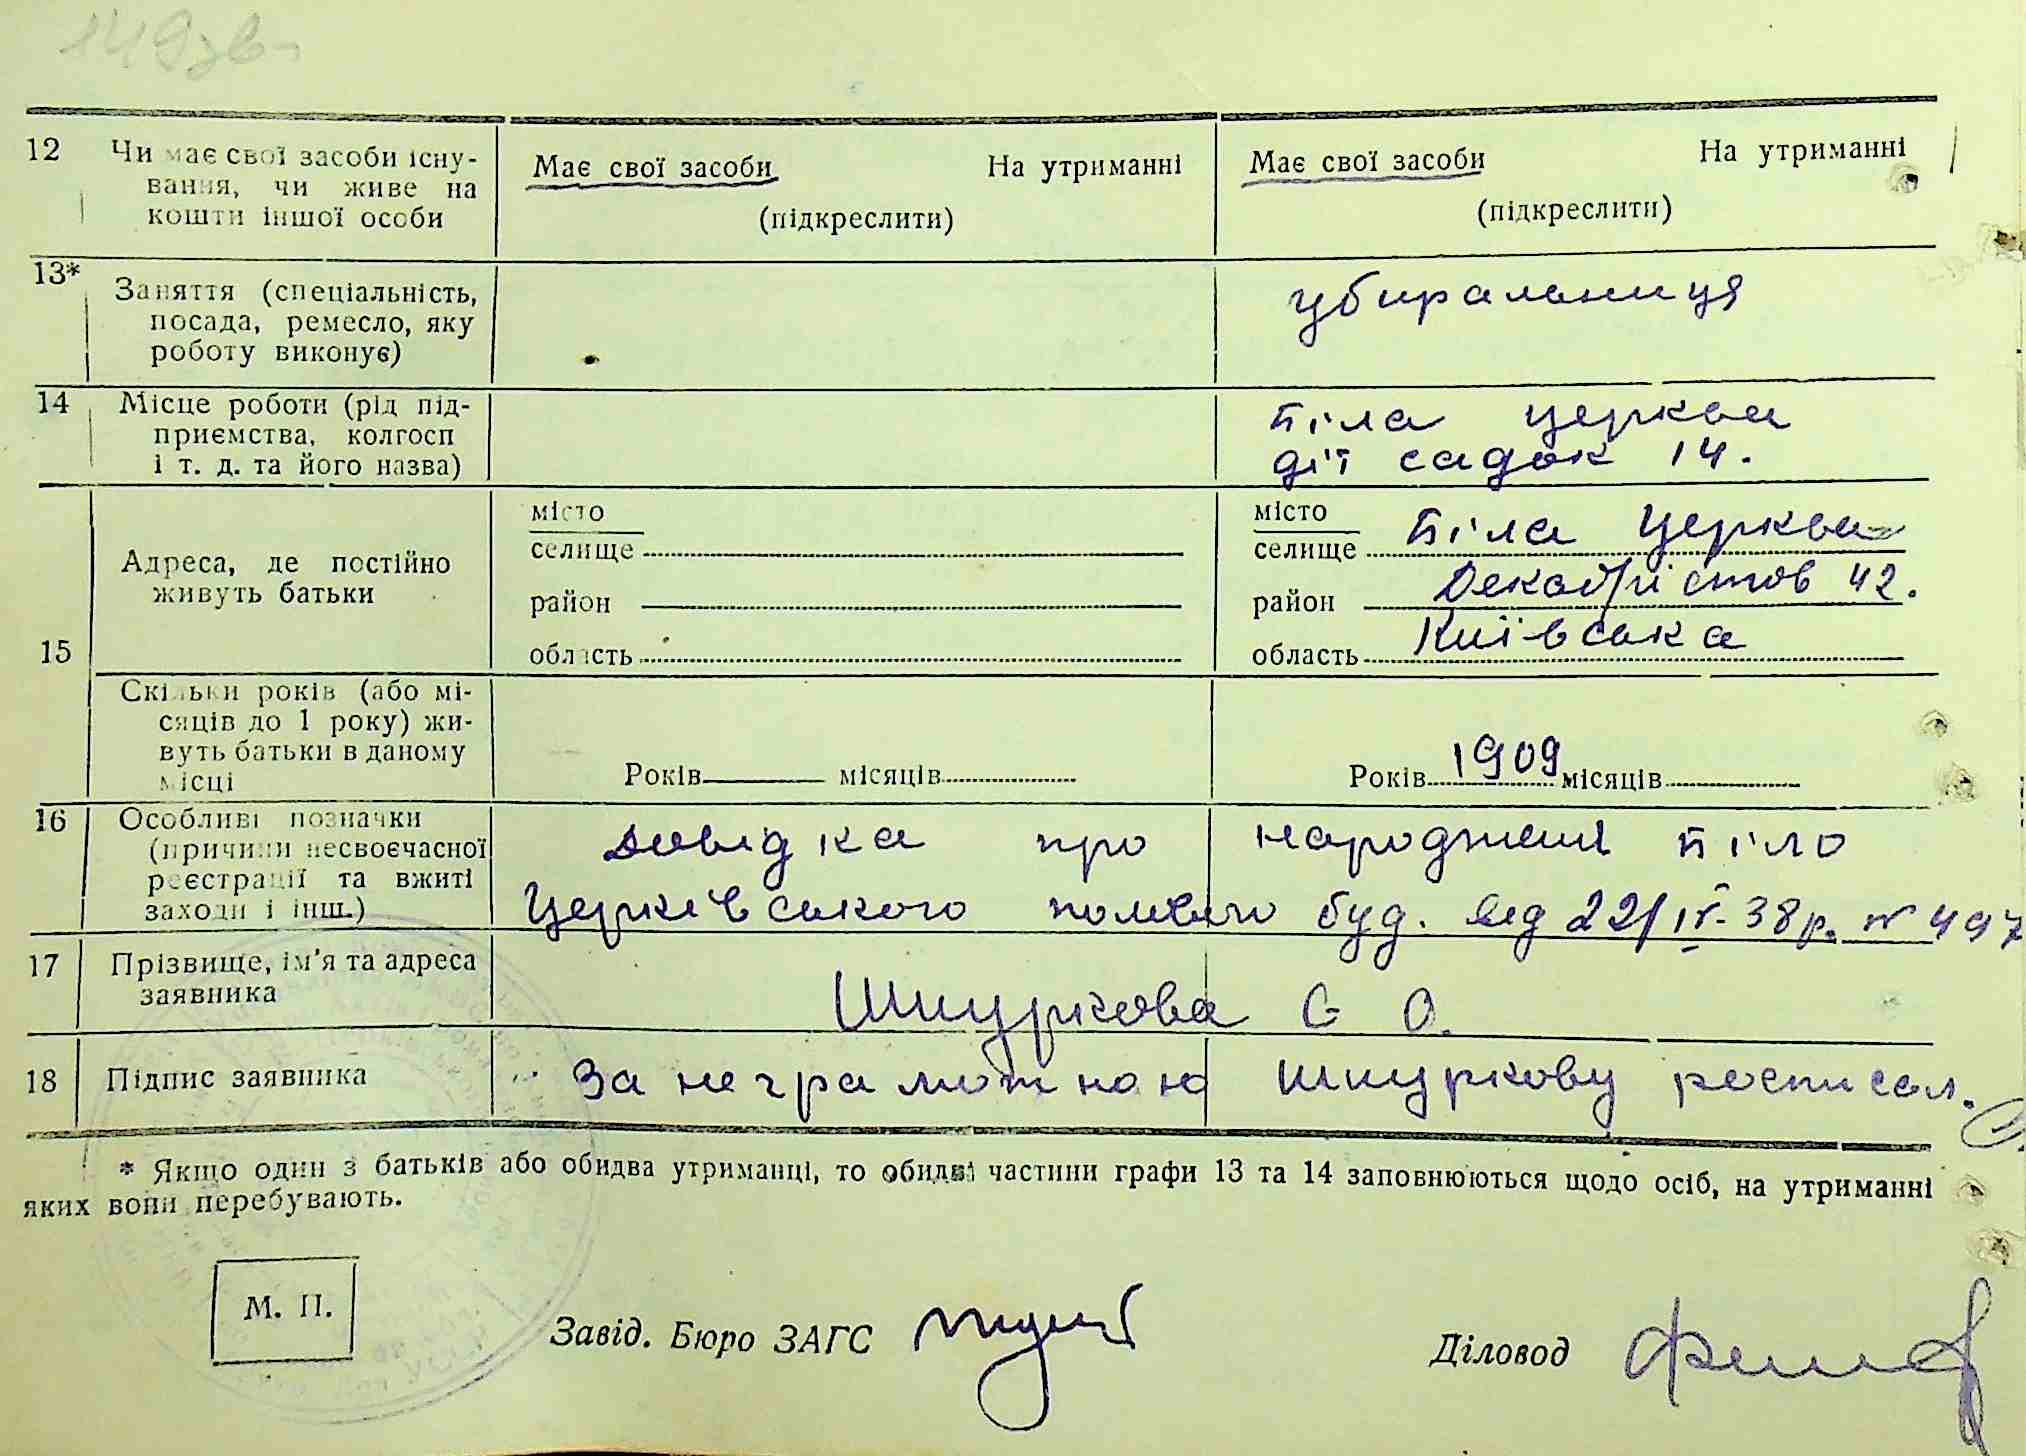 149зв
12 Чи має свої засоби існу- Має свої засоби На утриманні Має свої засоби На утриманні
вання, чи живе на
кошти іншої особи (підкреслити) (підкреслити)
13* Заняття (спеціальність, убиральниця
посада, ремесло, яку
роботу виконує)
14 Місце роботи (рід під- Біла церква
приємства, колгосп діт садок 14.
і т. д. та його назва)
15 Адреса, де постійно живуть батьки
місто
селище
район
область
місто
селище Біла Церква
район Декабрістов 42.
область Київська
Скільки років (або мі-
сяців до 1 року) жи-
вуть батьки в даному
місці Років місяців Років 1909 місяців
16 Особливі позначки
(причини несвоєчасної
реєстрації та вжиті
заходи і інш.)
Довідка про народження Біло
Церківського буд. від 22/IV-38р. N 497
17 Прізвище, ім'я та адреса
заявника Шкуркова Є О.
18 Підпис заявника За неграмотною Шкуркову росписал.
* Якщо один з батьків або обидва утриманці, то обидві частини графи 13 та 14 заповнюються щодо осіб, на утриманні
яких вони перебувають.
М. П.
Завід. Бюро ЗАГС Діловод